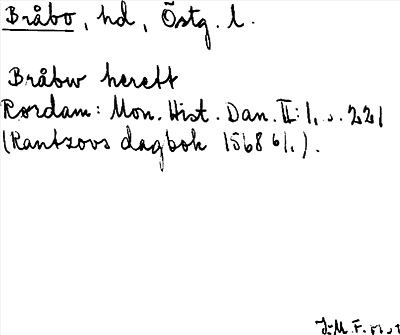 Bråbo, hd, Östg. l.
Bråbw herett
Rördam: Mon. Hist. Dan. II: 1, s. 221
(Rantzovs dagbok 1568 6/1).
J.M.F.